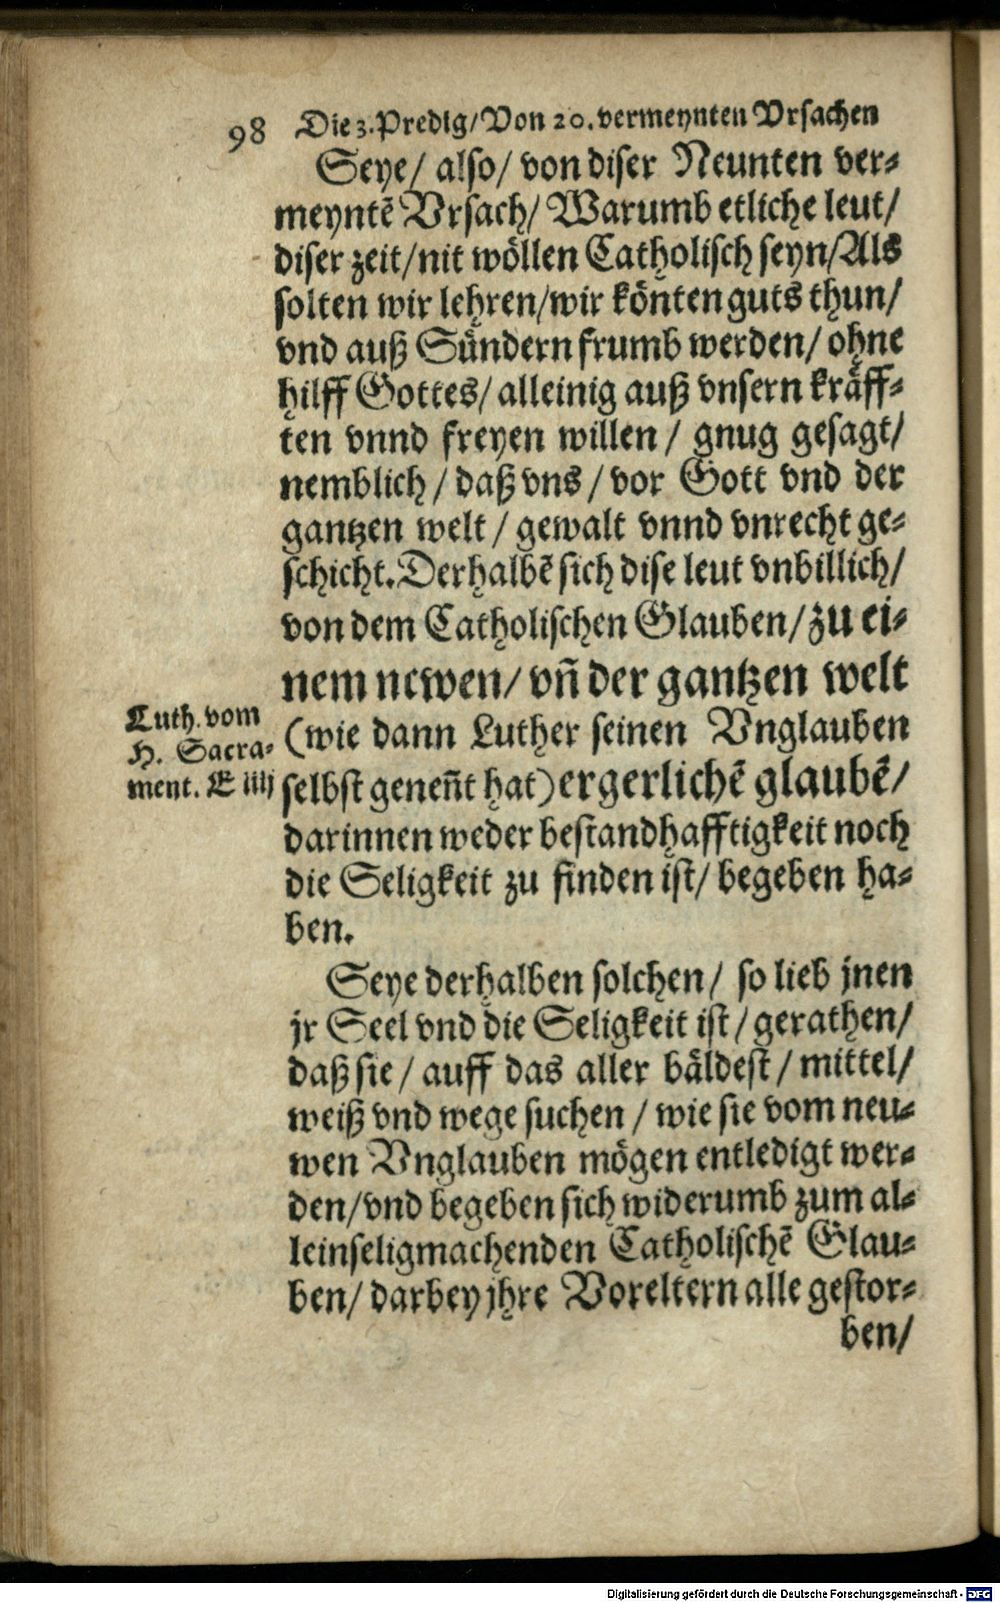 98 Die 3. Predig/ Von 20. vermeynten Vrsachen
Seye/ also/ von diser Neunten ver-
meyntẽ Vrsach/ Warumb etliche leut/
diser zeit/ nit wöllen Catholisch seyn/ Als
solten wir lehren/ wir könten guts thun/
vnd auß Sündern frumb werden/ ohne
hilff Gottes/ alleinig auß vnsern kräff-
ten vnnd freyen willen/ gnug gesagt/
nemblich/ daß vns/ vor Gott vnd der
gantzen welt/ gewalt vnnd vnrecht ge-
schicht. Derhalbẽ sich dise leut vnbillich/
von dem Catholischen Glauben/ zu ei-
nem newen/ vñ der gantzen welt
(wie dann Luther seinen Vnglauben
selbst geneñt hat) ergerlichẽ glaubẽ/
darinnen weder bestandhafftigkeit noch
die Seligkeit zu finden ist/ begeben ha-
ben.
Luth. vom
H. Sacra-
ment. E iiij
Seye derhalben solchen/ so lieb jnen
jr Seel vnd die Seligkeit ist/ gerathen/
daß sie/ auff das aller bäldest/ mittel/
weiß vnd wege suchen/ wie sie vom neu-
wen Vnglauben mögen entledigt wer-
den/ vnd begeben sich widerumb zum al-
leinseligmachenden Catholischẽ Glau-
ben/ darbey jhre Voreltern alle gestor-
ben/
Digitalisierung gefördert durch die Deutsche Forschungsgemeinschaft - DFG